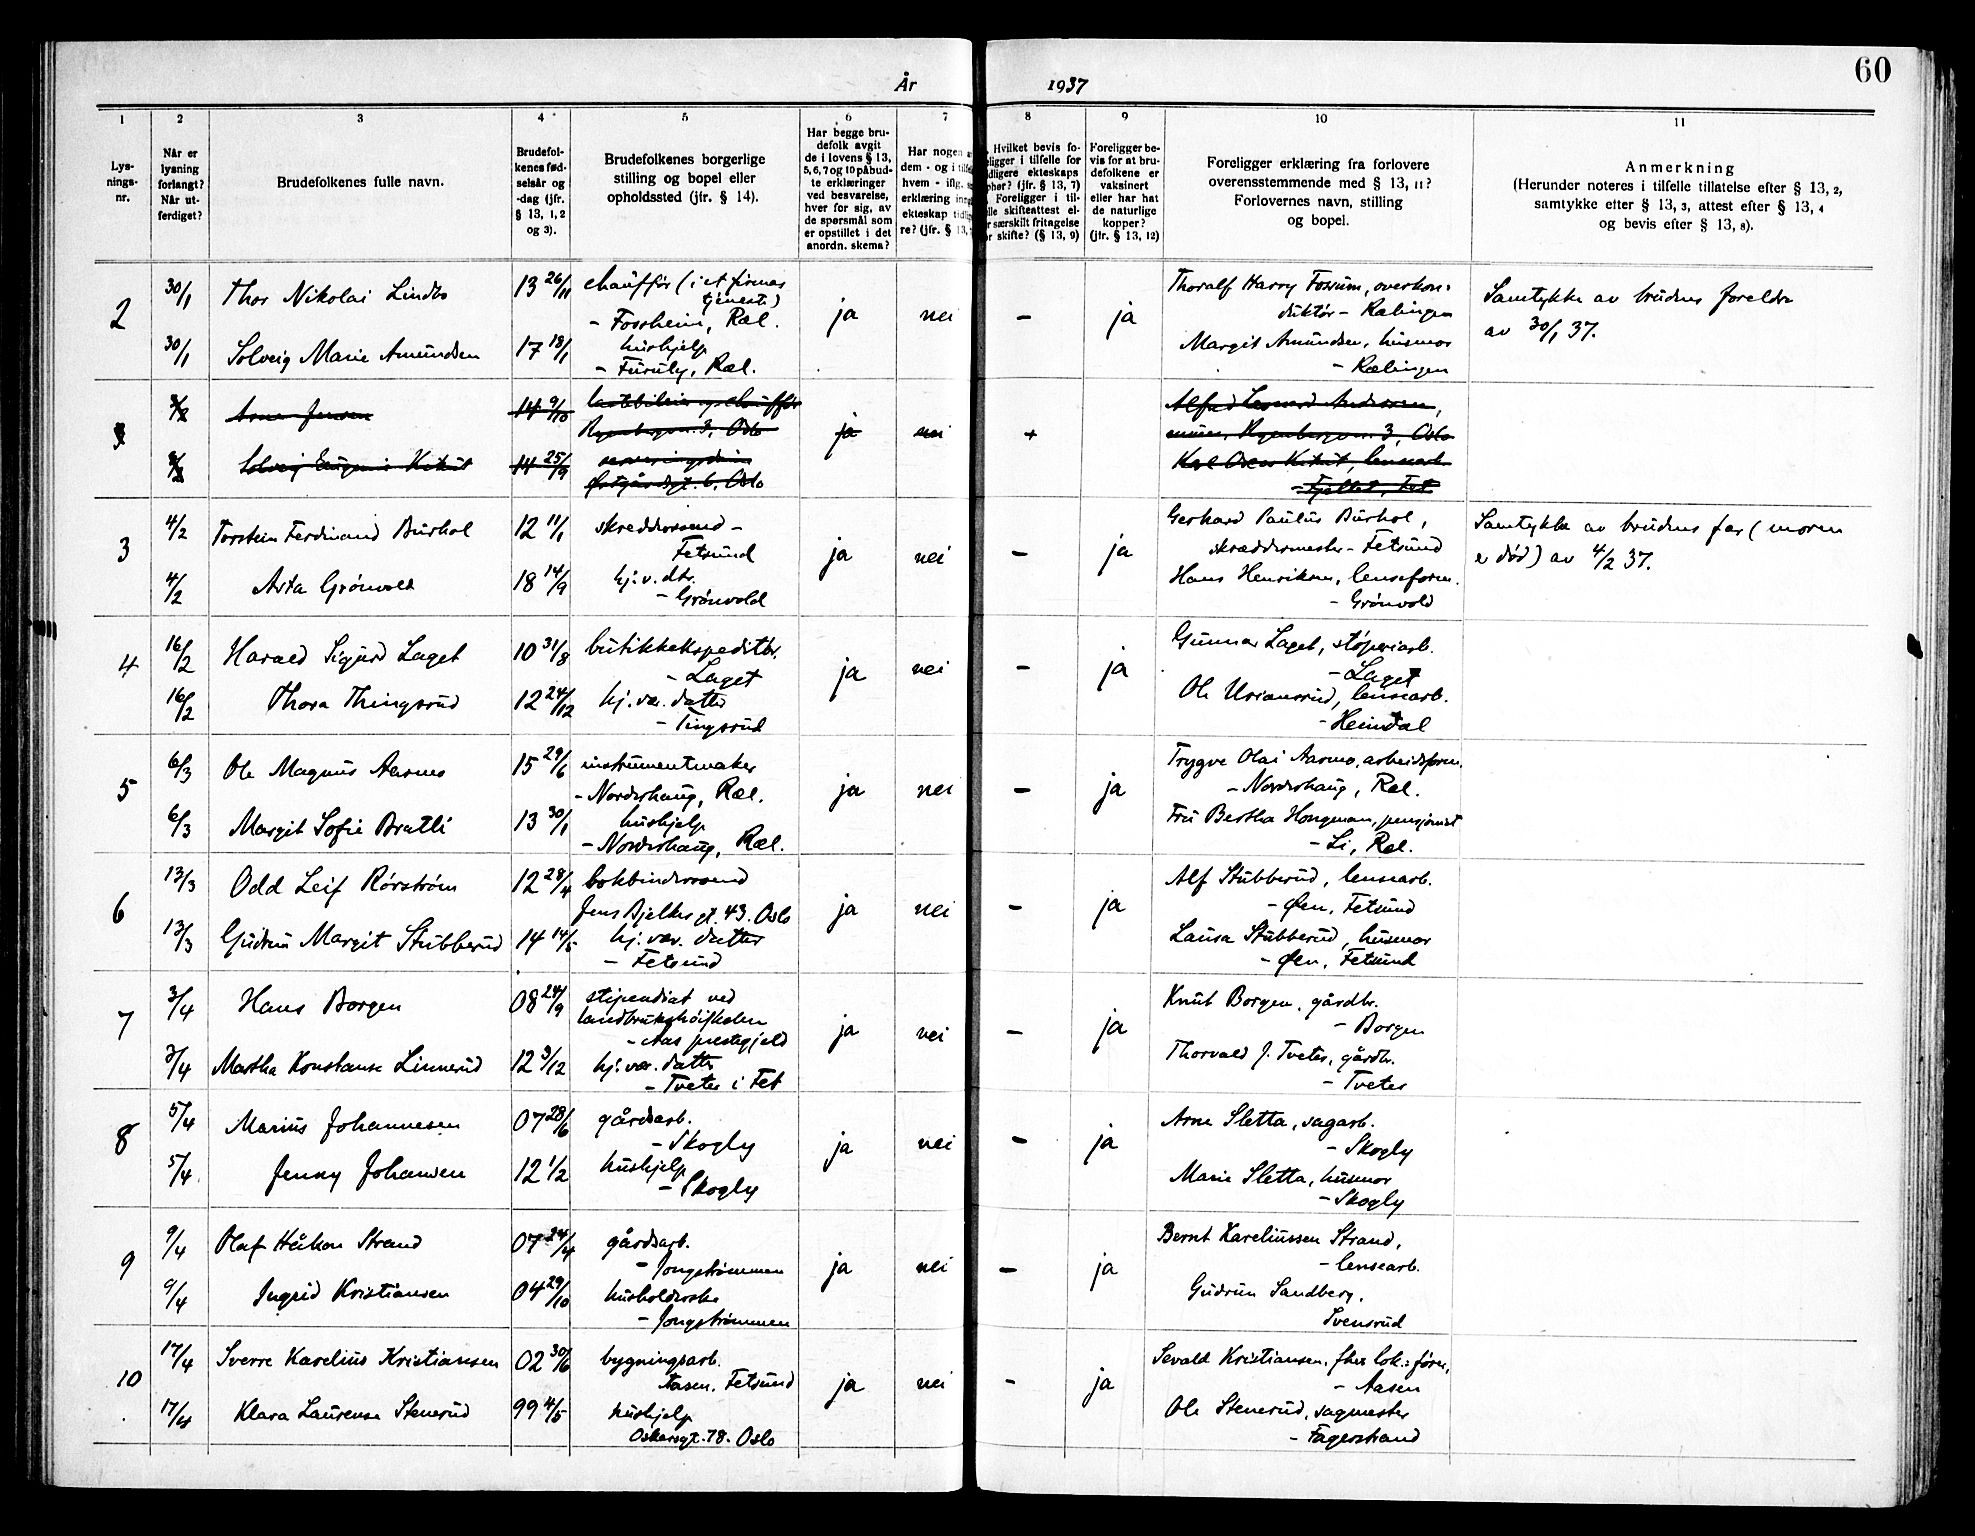 60
År 1937
1 2 3 4 5 6 7 8 9 10 11
Lys-
nings-
nr.
Når er
lysning
forlangt?
Når ut-
ferdiget?
Brudefolkenes fulle navn.
Brudefol-
kenes fød-
selsår og
-dag (jfr.
§ 13, 1, 2
og 3).
Brudefolkenes borgerlige
stilling og bopel eller
opholdssted (jfr. § 14).
Har begge bru-
defolk avgit
de i lovens § 13,
5, 6, 7 og 10 påbud-
te erklæringer
ved besvarelse,
hver for sig, av
de spørsmål som
er opstillet i det
anordn. skema?
Har nogen a
dem - og i tilfe
hvem - iflg. s
erklæring inng
ekteskap tidlig
re? (jfr. § 13,
Hvilket bevis fo-
ligger i tilfelle for
dligere ekteskaps
pher? (jfr. § 13, 7)
Foreligger i til-
lle skifteattest el-
r særskilt fritagelse
or skifte? (§ 13, 9)
Foreligger be-
vis for at bru-
defolkene er
vaksinert
eller har hat
de naturlige
kopper?
(jfr. § 13, 12)
Foreligger erklæring fra forlovere
overensstemmende med § 13, 11?
Forlovernes navn, stilling
og bopel.
Anmerkning
(Herunder noteres i tilfelle tillatelse efter § 13, 2,
samtykke efter § 13, 3, attest efter § 13, 4
og bevis efter § 13, 8).
2 30/1 Thor Nikolai Lindbo 13 26/11 chauffør (i et firmas
tjeneste)
- Fossheim, Ræl. ja nei - ja
30/1 Solveig Marie Amundsen 17 18/1 hushjelp
- Furuly, Ræl.
Thoralf Harry Fossum, overkon-
duktør - Rælingen
Margit Amundsen, husmor
- Rælingen
Samtykke av brudens foreldre
av 30/1 37.
Arne Jensen 14 9/10 lastebileier og chauffør
Ryenbergvn. 3, Oslo ja nei
14 25/9
6, Oslo
Ryenbergvn. 3, Oslo
- Fjellet, Fet
3 4/2 Torstein Ferdinand Burhol 12 11/1 skreddersvend -
Fetsund ja nei - ja
4/2 Asta Grönvold 18 14/9 hj. v. dtr.
- Grönvold
Gerhard Paulus Burhol,
skræddermester - Fetsund
Hans Henriksen, lenseform.
- Grönvold
Samtykke av brudens far (moren
er død) av 4/2 37.
4 16/2 Harald Sigurd Laget 10 31/8 butikkekspeditør.
- Laget ja nei - ja
16/2 Thora Thingsrud 12 24/12 hj. vær. datter
- Tingsrud
Gunnar Laget, støperiarb.
- Laget
Ole Uriansrud, lensearb.
- Heimdal
5 6/3 Ole Magnus Aasmo 15 29/6 instrumentmaker
- Nordrehaug, Ræl. ja nei - ja
6/3 Margit Sofie Bratli 13 30/1 hushjelp
- Nordrehaug, Ræl.
Trygve Olai Aasmo, arbeidsform.
- Nordrehaug, Ræl.
Fru Bertha Hongman, pensjonist
- Li, Ræl.
6 13/3 Odd Leif Rørstrøm 12 28/4 bokbindersvend
Jens Bjelkes gt. 43. Oslo ja nei - ja
13/3 Gudrun Margit Stubberud 14 14/5 hj. vær. datter
- Fetsund
Alf Stubberud, lensearb.
- Øen, Fetsund
Laura Stubberud, husmor
- Øen, Fetsund
7 3/4 Hans Borgen 08 24/9 stipendiat ved
landbrukshøiskolen
- Aas prestegjeld ja nei - ja
3/4 Martha Konstanse Linnerud 12 3/12 hj. vær. datter
- Tveter i Fet
Knut Borgen, gårdbr.
- Borgen
Thorvald J. Tveter, gårdbr.
- Tveter
8 5/4 Marius Johannesen 07 28/6 gårdsarb.
- Skogly ja nei - ja
5/4 Jenny Johansen 12 1/2 hushjelp
- Skogly
Arne Sletta, sagarb.
- Skogly
Marie Sletta, husmor
- Skogly
9 9/4 Olaf Håkon Strand 07 24/4 gårdsarb.
- Jongstrømmen ja nei - ja
9/4 Ingrid Kristiansen 04 29/10 husholderske
- Jongstrømmen
Bernt Kareliussen Strand,
- lensearb.
Gudrun Sandberg,
Svensrud
10 17/4 Sverre Karelius Kristiansen 02 30/6 bygningsarb.
Aasen, Fetsund ja nei - ja
17/4 Klara Laurense Stenerud 99 4/5 hushjelp
Oskarsgt. 78. Oslo
Sevald Kristiansen, fhv. lok.-fører,
- Aasen
Ole Stenerud, sagmester
- Fagerstrand